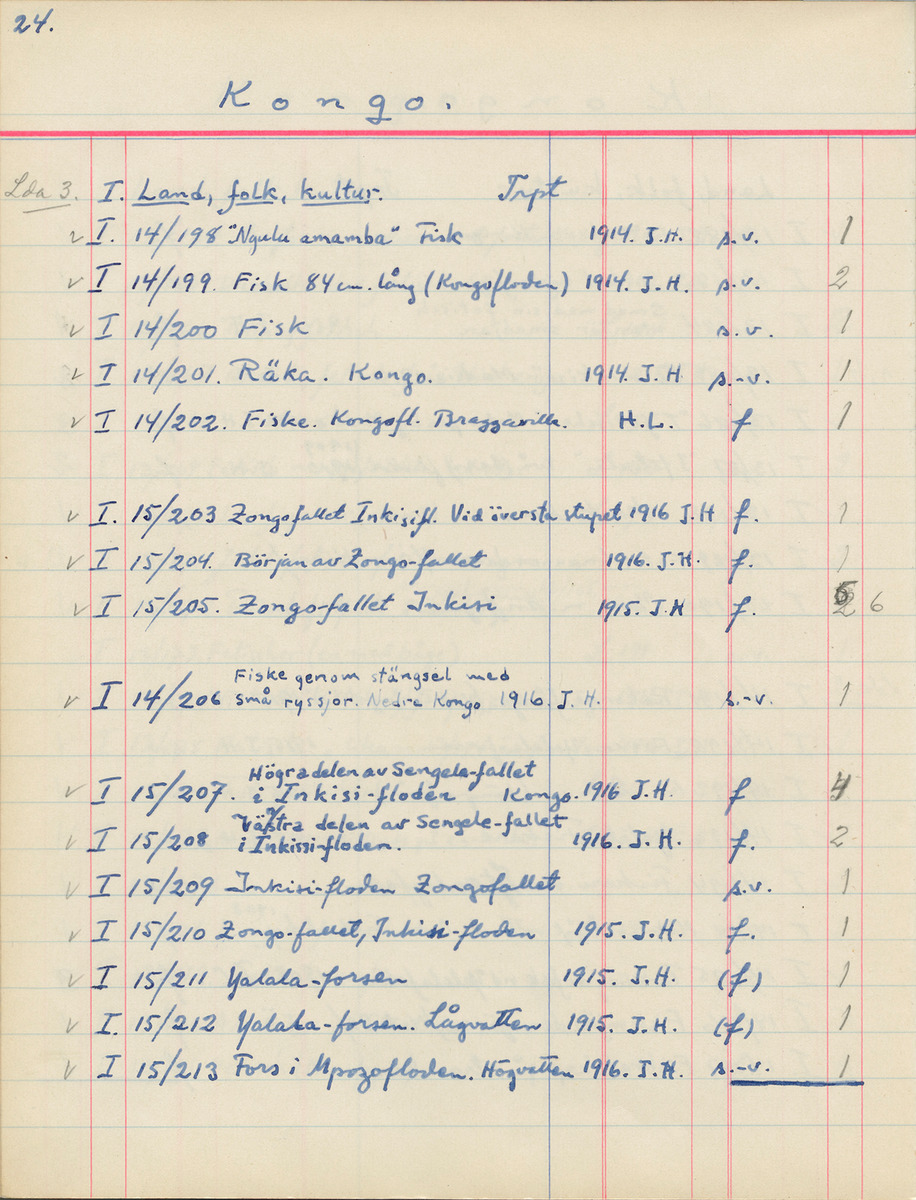 24.
Kongo.
Lda 3. I. Land, folk, kultur. Trpt
v I. 14/198 "Ngulu amamba" Fisk 1914. J.H. s.v. 1
v I 14/199. Fisk 84 cm. lång (Kongofloden) 1914. J.H. s.v. 2
v I 14/200 Fisk s.v. 1
v I 14/201. Räka. Kongo. 1914. J.H s.-v. 1
v I 14/202. Fiske. Kongofl. Brazzaville. H.L. f 1
v I. 15/203 Zongofallet Inkisifl. Vid översta stupet 1916 J.H f. 1
v I 15/204. Början av Zongo-fallet 1916. J.H. f. 1
v I 15/205. Zongo-fallet Inkisi 1915. J.H f. 6
Fiske genom stängsel med
v I 14/206 små ryssjor. Nedre Kongo 1916. J.H. s.-v. 1
Högra delen av Sengele-fallet
v I 15/207. i Inkisi-floden Kongo. 1916 J.H. f 4
Västra delen av Sengele-fallet
v I 15/208 i Inkissi-floden. 1916. J.H. f. 2
v I 15/209 Inkisi-floden Zongofallet s.v. 1
v I 15/210 Zongo-fallet, Inkisi-floden 1915. J.H. f. 1
v I 15/211 Yalala-forsen 1915. J.H. (f) 1
v I. 15/212 Yalala-forsen. Lågvatten 1915. J.H. (f) 1
v I 15/213 Fors i Mpozofloden. Högvatten 1916. J.H. s.-v. 1